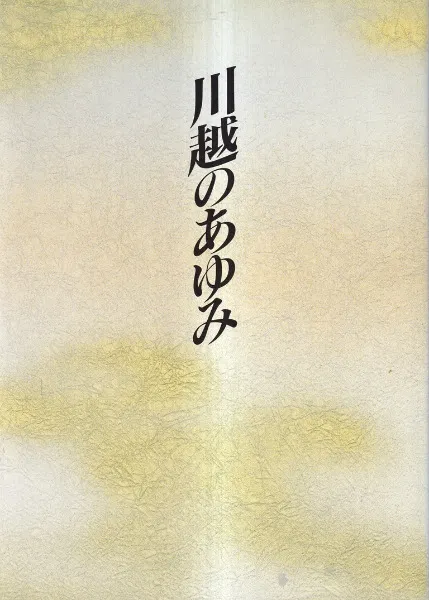 川越のあゆみ